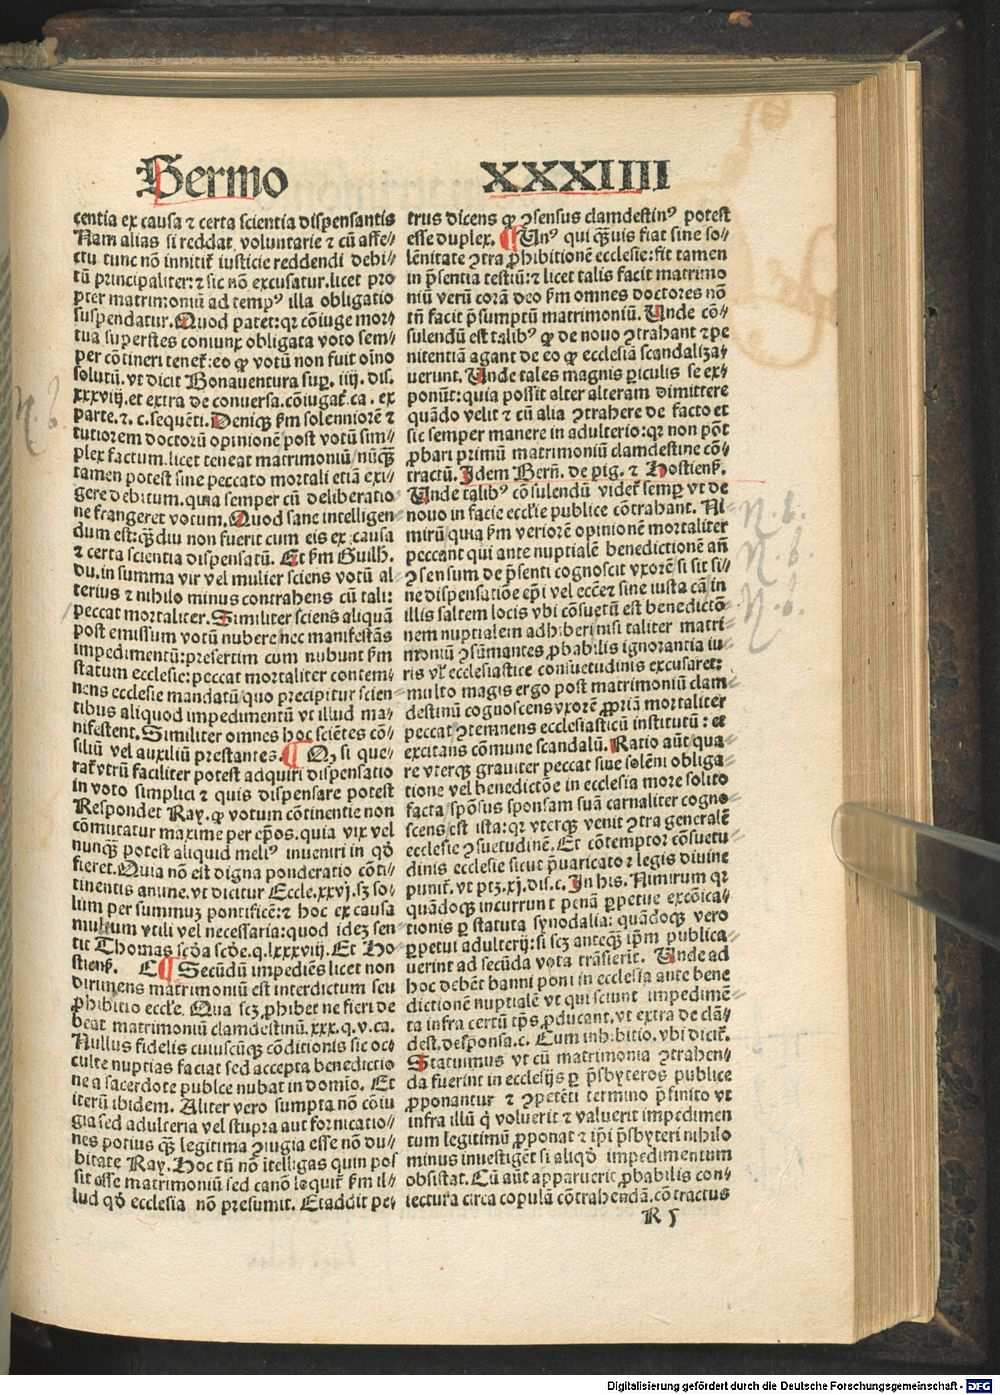 Sermo
XXXIIII
centia ex causa ⁊ certa scientia dispensantis
Nam alias si reddat, voluntarie ⁊ cū affe⸗
ctu tunc nō innitit᷑ iusticie reddendi debi⸗
tū principaliter: ⁊ sic nō excusatur. licet pro
pter matrimoniū ad tempꝰ illa obligatio
suspendatur. Quod patet: qꝛ cōiuge mor⸗
tua superstes coniunx obligata voto sem⸗
per cōtineri tenet᷑: eo ꝙ votū non fuit oīno
solutū. vt dicit Bonauentura suꝑ. iiij. dis.
xxxviij. et extra de conuersa. cōiugat᷑. ca. ex
parte. ⁊. c. sequēti. Deniqꝫ ẜm solenniorē ⁊
tutiorem doctorū opinionē post votū sim⸗
plex factum. licet teneat matrimoniū nūqꝫ̄
tamen potest sine peccato mortali etiā exi⸗
gere debitum. quia semper cū deliberatio
ne frangeret votum. Quod sane intelligen⸗
dum est: qꝫ̄diu non fuerit cum eis ex causa
⁊ certa scientia dispensatū. Et ẜm Guilh.
du. in summa vir vel mulier sciens votū al⸗
terius ⁊ nihilo minus contrahens cū tali:
peccat mortaliter. Similiter sciens aliquā
post emissum votū nubere nec manifestās
impedimentū: presertim cum nubunt ẜm
statum ecclesie: peccat mortaliter contem⸗
nens ecclesie mandatū quo precipitur scien⸗
tibus aliquod impedimentū vt illud ma⸗
nifestent. Similiter omnes hoc sciētes cō⸗
siliū vel auxiliū prestantes. ¶ Qꝫ si que⸗
rat᷑ vtrū faciliter potest adquiri dispensatio
in voto simplici ⁊ quis dispensare potest
Respondet Ray. ꝙ votum cōtinentie non
cōmutatur maxime per ep̄os. quia vix vel
nunqꝫ̄ potest aliquid meliꝰ inueniri in qd̄
fieret. Quia nō est digna ponderatio cōti⸗
tinentis anime. vt dicitur Eccle. xxvj. sꝫ so⸗
lum per summuꝫ pontificē: ⁊ hoc ex causa
multum vtili vel necessaria: quod ideꝫ sen⸗
tit Thomas scd̄a scd̄e. q. lxxxviij. Et Ho
stienẜ. C ¶ Secūdū impediēs licet non
dirimens matrimoniū est interdictum seu
ꝓhibitio eccl̄e. Qua scꝫ ꝓhibet ne fieri de
beat matrimoniū clamdestinū. xxx. q. v. ca.
Nullus fidelis cuiuscūqꝫ cōditionis sic oc⸗
culte nuptias faciat sed accepta benedictio
ne a sacerdote publce nubat in domīo. Et
iterū ibidem. Aliter vero sumpta nō cōiu
gia sed adulteria vel stupra aut fornicatio⸗
nes potius qꝫ̄ legitima ꝯiugia esse nō du⸗
bitate Ray. Hoc tn̄ nō ītelligas quin pos
sit esse matrimoniū sed canō loquit᷑ ẜm il⸗
lud qd̄ ecclesia nō presumit. Et addit pe⸗
trus dicens ꝙ ꝯsensus clamdestinꝰ potest
esse duplex. ¶ Unꝰ qui qꝫ̄uis fiat sine so⸗
lēnitate ꝯtra ꝓhibitionē ecclesie: fit tamen
in p̄sentia testiū: ⁊ licet talis facit matrimo
niū verū corā deo ẜm omnes doctores nō
tn̄ facit p̄sumptū matrimoniū. Unde cō⸗
sulendū est talibꝰ ꝙ de nouo ꝯtrahant ⁊ pe
nitentiā agant de eo ꝙ ecclesiā scandaliza⸗
uerunt. Unde tales magnis ꝑiculis se ex⸗
ponūt: quia possit alter alteram dimittere
quādo velit ⁊ cū alia ꝯtrahere de facto et
sic semper manere in adulterio: qꝛ non pōt
ꝓbari primū matrimoniū clamdestine cō⸗
tractū. Idem Berñ. de pig. ⁊ Hostienẜ.
Unde talibꝰ cōsulendū videt᷑ semꝑ vt de
nouo in facie eccl̄ie publice cōtrahant. Ni
mirū quia ẜm veriorē opinionē mortaliter
peccant qui ante nuptialē benedictionē añ
ꝯsensum de p̄senti cognoscit vxorē si sit si⸗
ne dispensatiōe ep̄i vel ecc̄e ⁊ sine iusta cā in
illis saltem locis vbi cōsuetū est benedictō⸗
nem nuptialem adhiberi nisi taliter matri⸗
moniū ꝯsūmantes ꝓbabilis ignorantia iu⸗
ris vl̄ ecclesiastice consuetudinis excusaret:
multo magis ergo post matrimoniū clam⸗
destinū cognoscens vxorē ꝓpriā mortaliter
peccat ꝯtemnens ecclesiasticū institutū: et
excitans cōmune scandalū. Ratio aūt qua⸗
re vterqꝫ grauiter peccat siue solēni obliga⸗
tione vel benedictōe in ecclesia more solito
facta spōsus sponsam suā carnaliter cogno⸗
scens est ista: qꝛ vterqꝫ venit ꝯtra generalē
ecclesie ꝯsuetudinē. Et cōtemptor cōsuetu⸗
dinis ecclesie sicut p̄uaricator legis diuine
punit᷑. vt ptꝫ. xj. dis. c. In his. Nimirum qꝛ
quādoqꝫ incurrunt penā ꝑpetue excōica⸗
tionis ꝑ statuta synodalia: quādoqꝫ vero
ꝑpetui adulterij: si scꝫ anteqꝫ̄ ip̄m publica⸗
uerint ad secūda vota trāsierit. Unde ad
hoc debēt banni poni in ecclesia ante bene
dictionē nuptialē vt qui sciunt impedimē⸗
ta infra certū tp̄s ꝓducant. vt extra de clā⸗
dest. desponsa. c. Cum inhibitio. vbi dicit᷑.
Statuimus vt cū matrimonia ꝯtrahen⸗
da fuerint in ecclesijs ꝑ p̄sbyteros publice
ꝓponantur ⁊ ꝯpetēti termino p̄finito vt
infra illū qͥ voluerit ⁊ valuerit impedimen
tum legitimū ꝓponat ⁊ ip̄i p̄sbyteri nihilo
minus inuestigēt si aliqd̄ impedimentum
obsistat. Cū aūt apparuerit ꝓbabilis con⸗
iectura circa copulā cōtrahendā. cōtractus
R 5
N. b.
N. b.
N. b.
N. b.
Digitalisierung gefördert durch die Deutsche Forschungsgemeinschaft - DFG